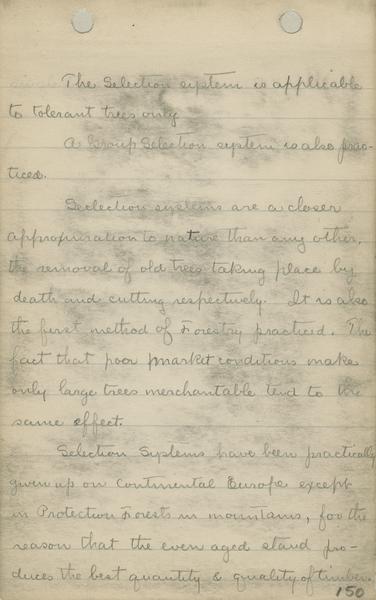 The Selection system is applicable
to tolerant trees only
A Group Selection system is also prac-
ticed.
Seclection systems are a closer
approximation to nature than any other,
the removal of old trees taking place by
death and cutting respectively. It is also
the first method of Forestry practiced. The
fact that poor market conditions make
only large trees merchantable tend to the
same effect.
Selection Systems have been practically
given up on Continental Europe except
in Protection Forests in mountains, for the
reason that the even aged stand pro-
duces the best quantity & quality of timber.
150